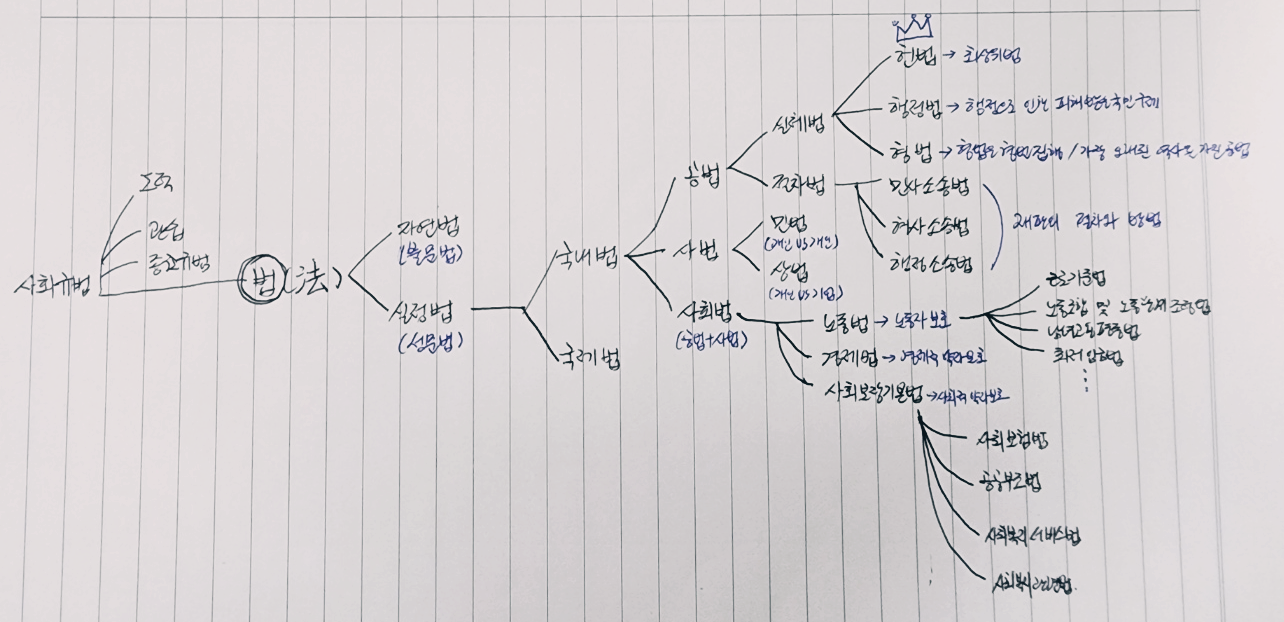 사회규범
도덕
관습
종교규범
법(法)
자연법
(불문법)
실정법
(성문법)
국내법
국제법
공법
사법
사회법
(공법+사법)
실체법
절차법
헌법 → 최상위법
행정법 → 행정으로 인한 피해 받은 국민구제
형법 → 형벌로 형벌집행 / 가장 오래된 역사를 가진 공법
민사소송법
형사소송법
행정소송법
재판의 절차와 방법
민법
(개인 vs 개인)
상법
(개인 vs 기업)
노동법 → 노동자 보호
근로기준법
노동조합 및 노동관계 조정법
남녀고용평등법
최저임금법
⋮
경제법 → 경제적 약자보호
사회보장기본법 → 사회적 약자보호
사회보험법
공공부조법
사회복지서비스법
사회복지관련법